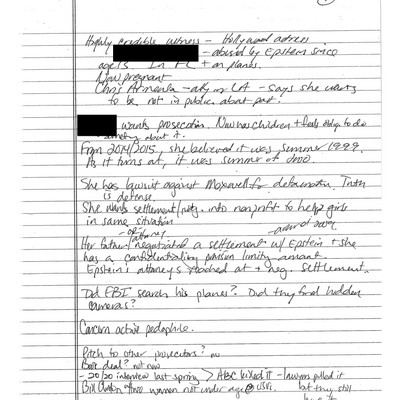 Highly credible witness - Hollywood actress
- abused by Epstein since
age 13 in FL + on planes.
Now pregnant
Chris Armenta - atty in LA - says she wants
to be not in public about past.
wants prosecution. Now has children + feels oblig to do
about it.
From 2014/2015, she believed it was summer 1999.
As it turns out, it was summer of 2000.
She has lawsuit against Maxwell for defamation. Truth
is defense.
She wants settlement / into nonprofit to help girls
in same situation
- or attorney
- around 2009
Her father negotiated a settlement w/ Epstein + she
has a confidentiality provision limiting amount.
Epstein's attorneys reached out + neg. settlement.
Did FBI search his planes? Did they find hidden
cameras?
Concern active pedophile.
Pitch to other prosecutors? no
Book deal? not now
- 20/20 interview last spring > ABC killed it - lawyers killed it
Bill Clinton women not under age @ USVI.
but they still
have it